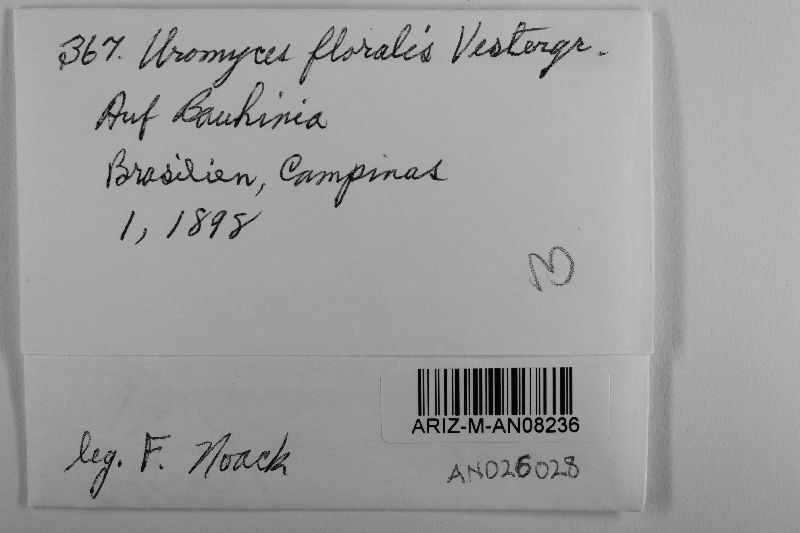 367. Uromyces floralis Vestergr.
Auf Bauhinia
Brasilien, Campinas
1, 1898
B
ARIZ-M-AN08236
leg. F. Noack
AN026028